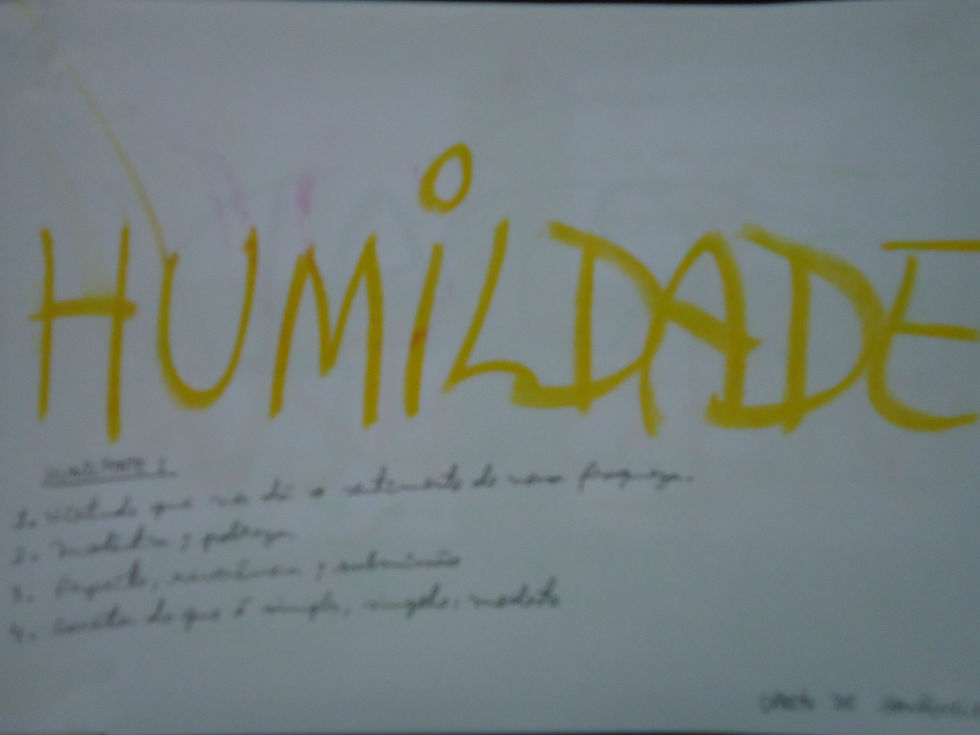 HUMILDADE
HUMILDADE :
1. Virtude que nos dá o sentimento da nossa fraqueza.
2. modéstia ; pobreza
3. Respeito, reverência ; submissão
4. do que é simples, singelo, modesto
DE